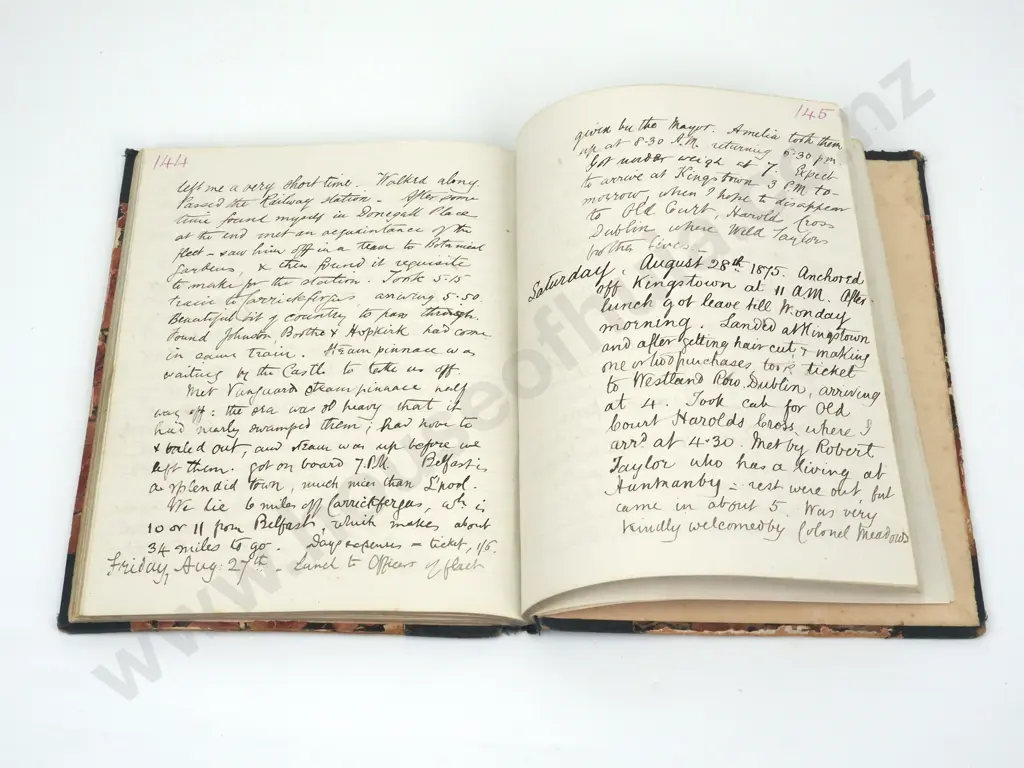 144
left me a very short time. Walked along.
Passed the Railway station. After some
time found myself in Donegall Place
at the end met an acquaintance of the
fleet - saw him off in a tram to Botanical
Gardens, & then found it requisite
to make for the station. Took 5.15
train to Carrickfergus, arriving 5.50.
Beautiful bit of country to pass through.
Found Johnson, Boothe & Hopkirk had come
in same train. Steam pinnace was
waiting by the Castle to take us off.
Met Vanguard's steam pinnace half
way off: the sea was so heavy that it
had nearly swamped them; had hove to
& baled out, and steam was up before we
left them. got on board 7.P.M. Belfast is
a splendid town, much nicer than L'pool.
We lie 6 miles off Carrickfergus, wh. is
10 or 11 from Belfast, which makes about
34 miles to go. Day's expenses = ticket, 1/6.
Friday, Aug: 27th - Lunch to Officers of fleet
145
given by the Mayor. Amelia took them
up at 8.30 A.M. returning 5.30 p.m.
Got under weigh at 7. Expect
to arrive at Kingstown 3 P.M. to-
morrow, when I hope to disappear
to Old Court, Harold Cross
Dublin, where Wild Taylors
brother lives.
Saturday, August 28th 1875. Anchored
off Kingstown at 11 A.M. After
lunch got leave till Monday
morning. Landed at Kingstown
and after getting hair cut, & making
one or two purchases, took ticket
to Westland Row. Dublin, arriving
at 4. Took cab for Old
Court Harolds Cross, where I
arrd at 4.30. Met by Robert
Taylor who has a living at
Hunmanby = rest were out, but
came in about 5. Was very
kindly welcomed by Colonel Meadows